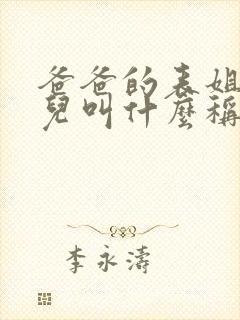 爸爸的表姐
兒叫什麼稱
李永濤